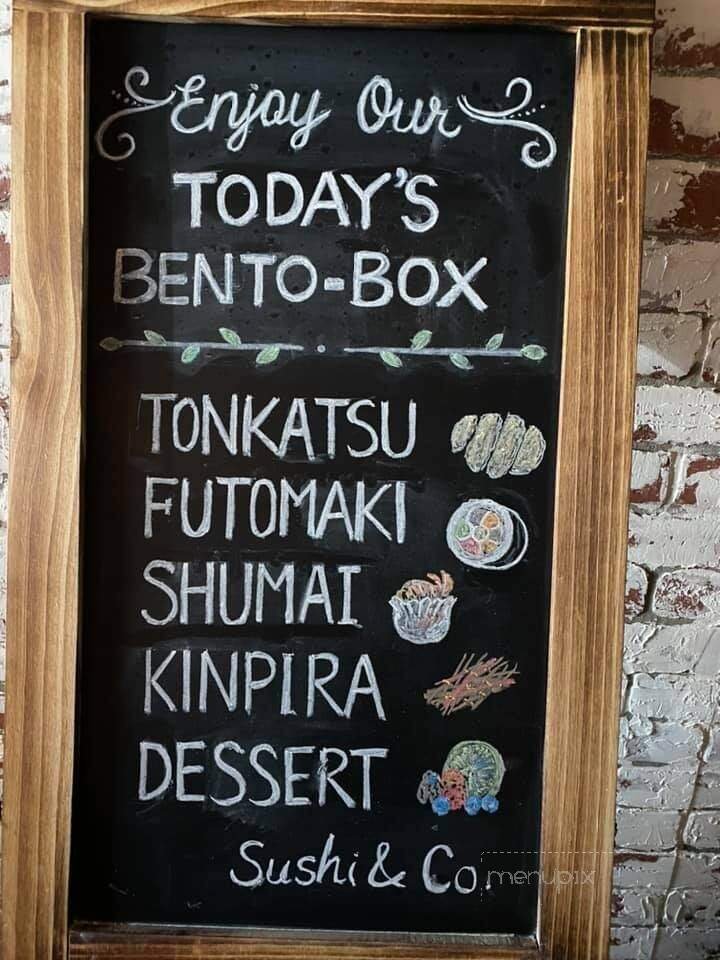 Enjoy Our
TODAY'S
BENTO-BOX
TONKATSU
FUTOMAKI
SHUMAI
KINPIRA
DESSERT
Sushi & Co.
menupix